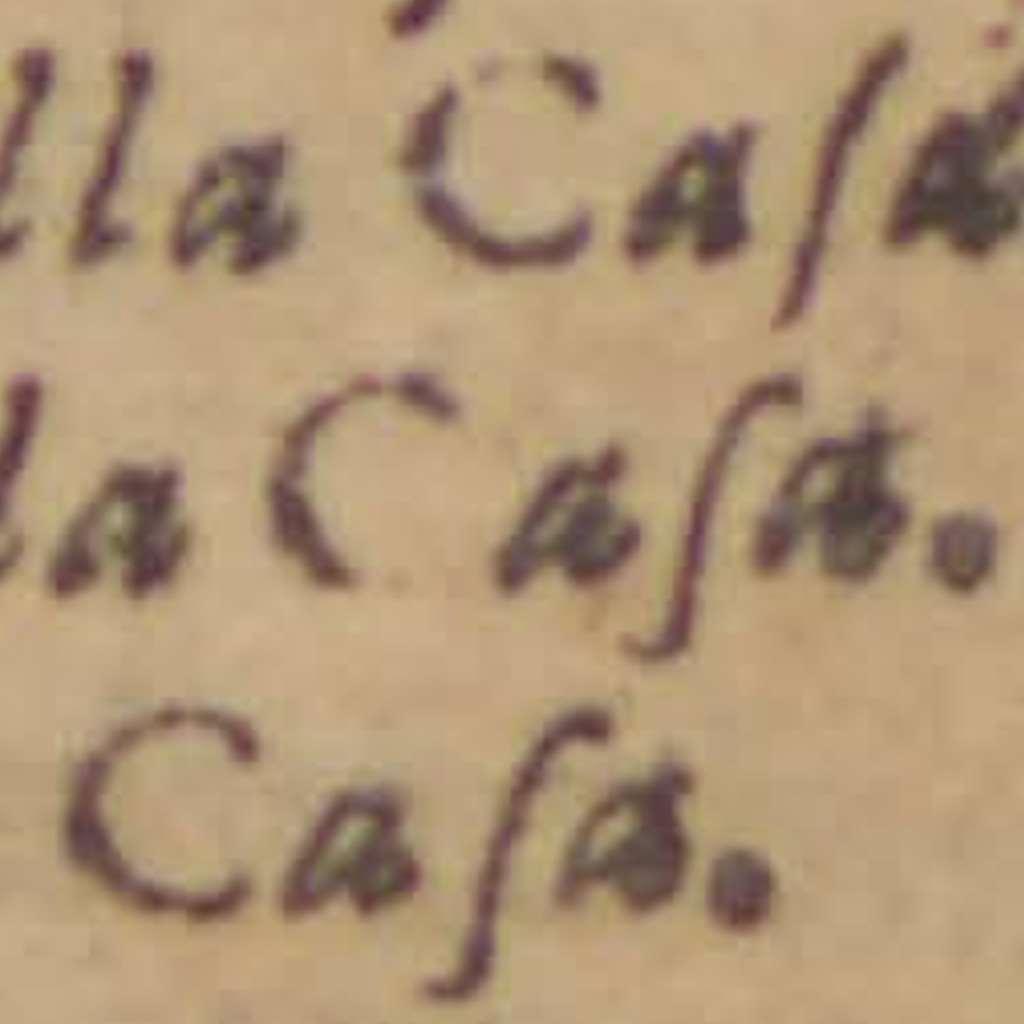 lla Caſa
la Caſa.
Caſa.